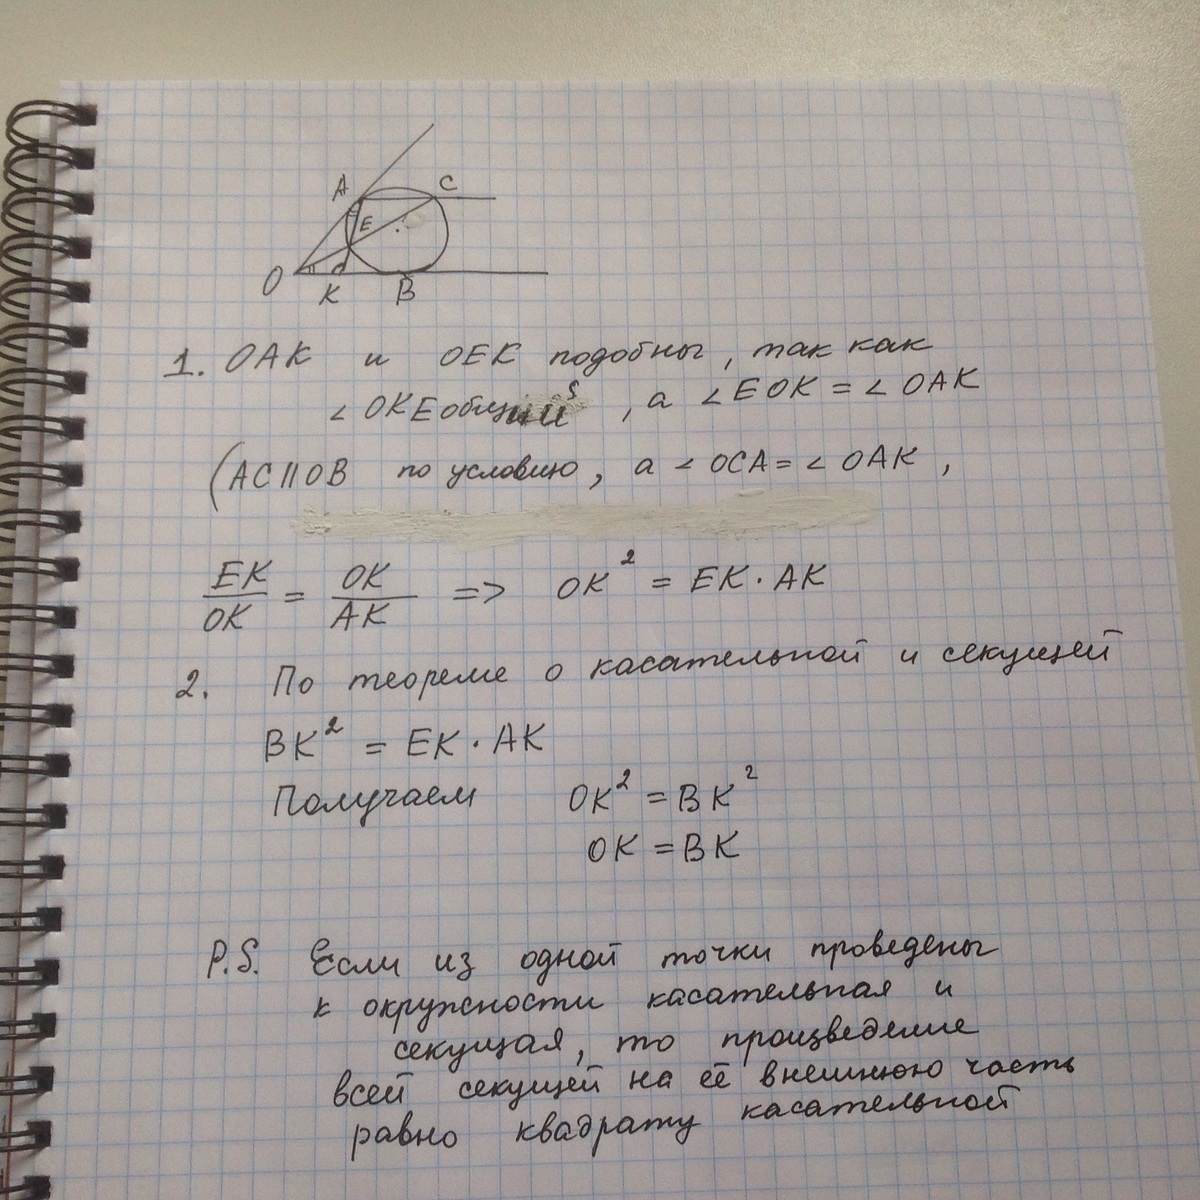 A
C
E
O
K
B
1. OAK и OEK подобны, так как
∠OKE общий, а ∠EOK = ∠OAK
(AC||OB по условию, а ∠OCA = ∠OAK,
EK/OK = OK/AK => OK² = EK·AK
2. По теореме о касательной и секущей
BK² = EK·AK
Получаем OK² = BK²
OK = BK
P.S. Если из одной точки проведены
к окружности касательная и
секущая, то произведение
всей секущей на её внешнюю часть
равно квадрату касательной